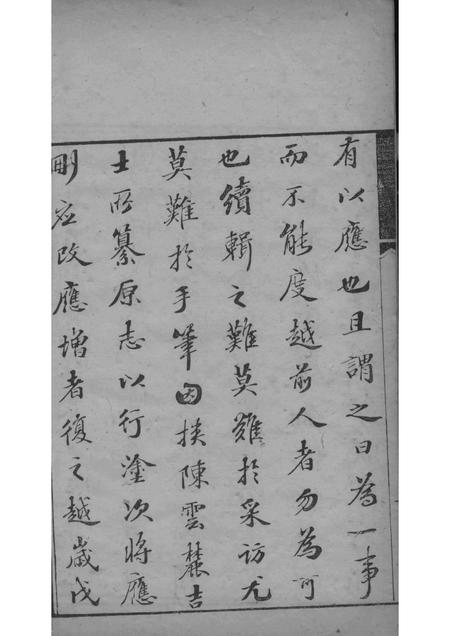 有以應也且謂之曰為一事
而不能度越前人者勿為可
也續輯之難莫難於采訪尤
莫難於手筆因挨陳雲麓吉
士所纂原志以行塗次將應
刪應改應增者復之越歲戊